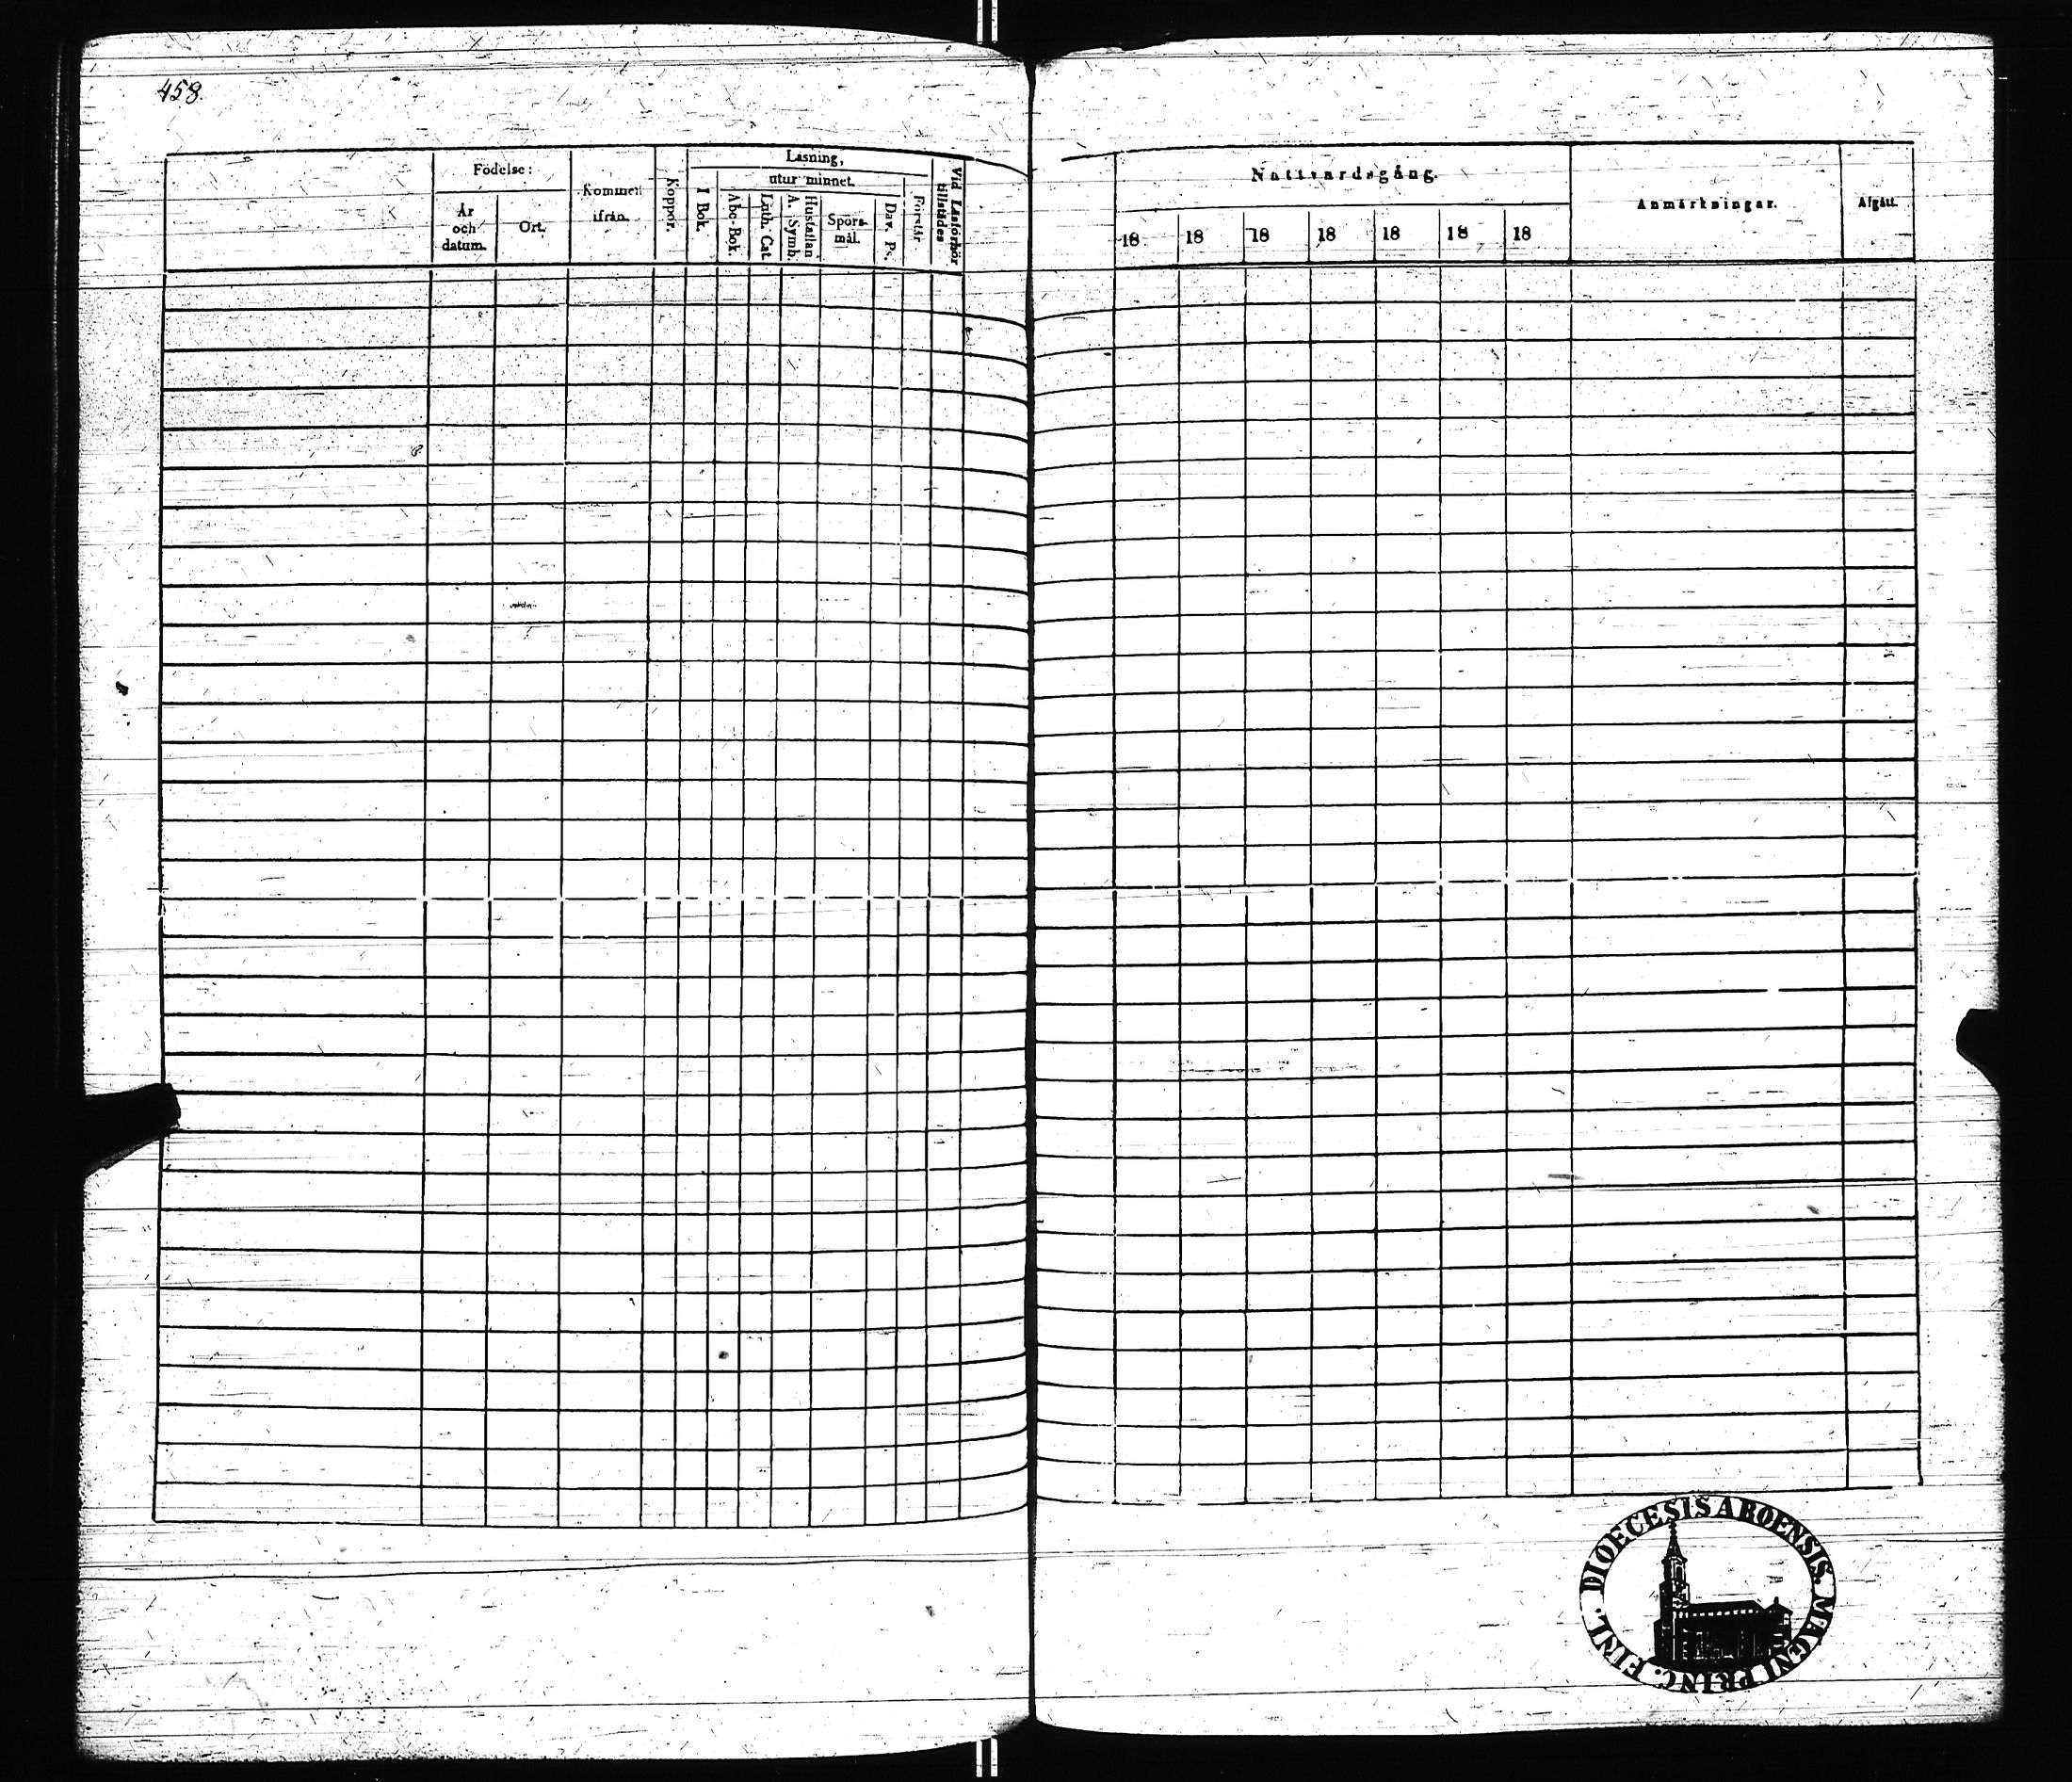 458.
Födelse:
År
och
datum.
Ort.
Kommen
ifrån.
Koppor.
Läsning,
I Bok.
utur minnet.
Abc-Bok.
Luth. Cat.
Hustaflan
A. Symb.
Spörs-
mål.
Dav. Ps.
Förstår
Vid Läsförhör
tillstädes
Nattvardsgång.
18 18 18 18 18 18 18
Anmärkningar.
Afgått.
DIOECESIS ABOENSIS. MAGNI PRINC. FINL.